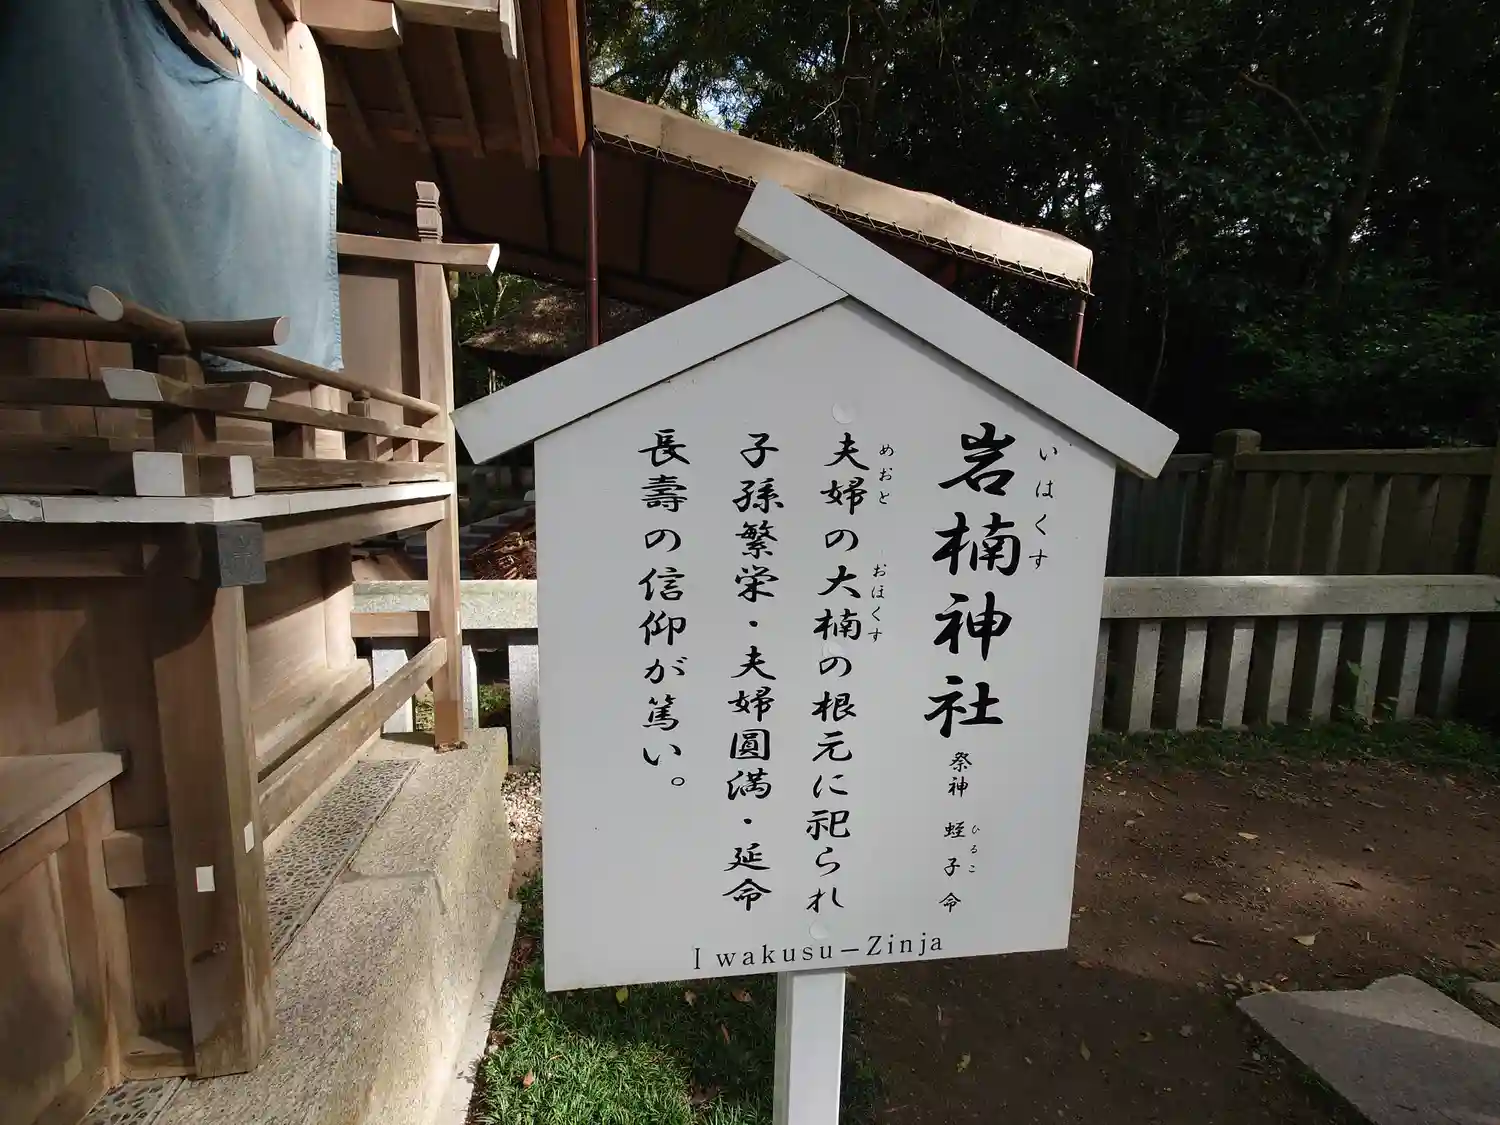 岩楠神社 祭神 蛭子命
いはくす
ひるこ
夫婦の大楠の根元に祀られ
めおと
おほくす
子孫繁栄・夫婦圓満・延命
長壽の信仰が篤い。
Iwakusu－Zinja